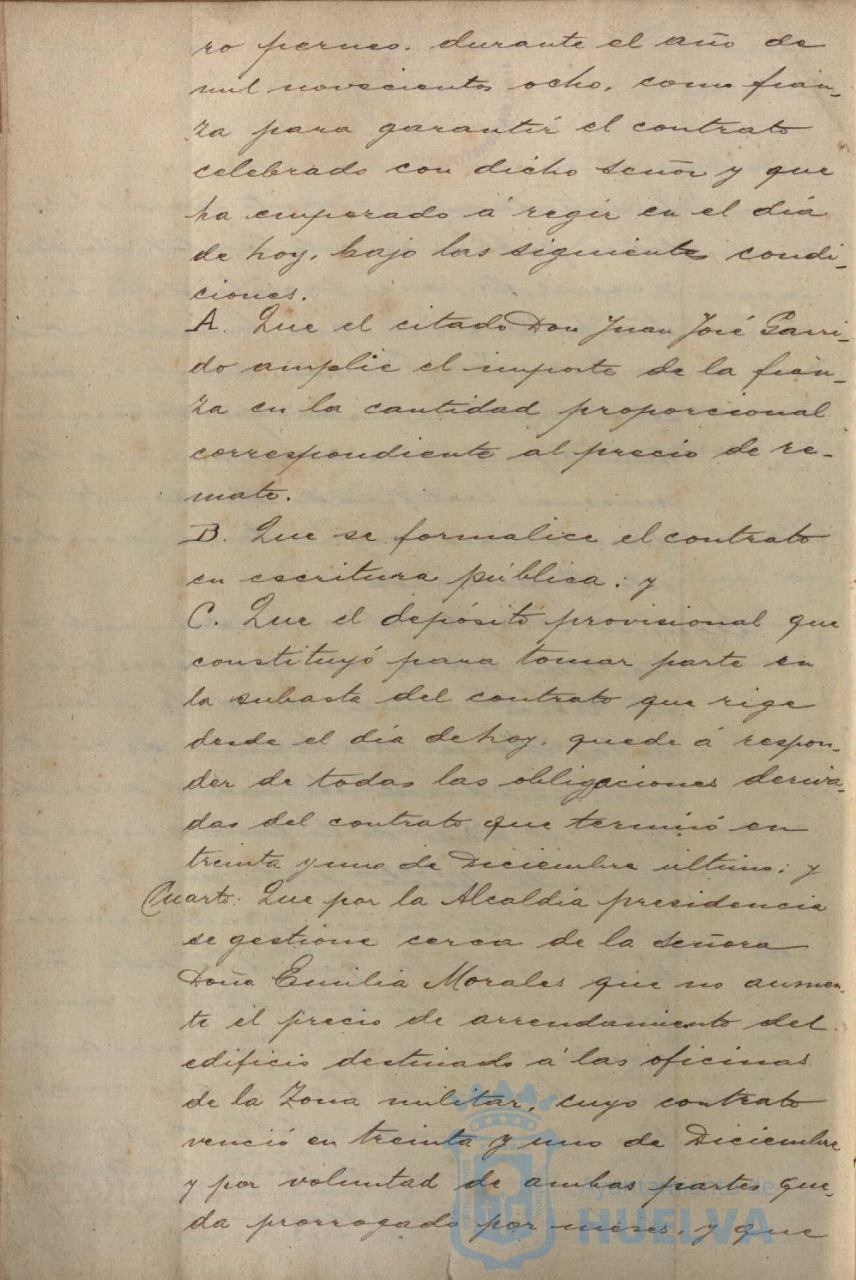 ro pernes. durante el año de
mil novecientos ocho, como fian-
za para garantir el contrato
celebrado con dicho Señor y que
ha emperado á regir en el día
de hoy, bajo las siguientes condi-
ciones.
A. Que el citado Don Juan José Garri-
do amplie el importe de la fian-
za en la cantidad proporcional
correspondiente al precio de re-
mate.
B. Que se formalice el contrato
en escritura pública; y
C. Que el depósito provisional que
constituyó para tomar parte en
la subasta del contrato que rige
desde el día de hoy, quede á respon-
der de todas las obligaciones deriva-
das del contrato que terminó en
treinta y uno de Diciembre último; y
Cuarto: Que por la Alcaldía presidencia
se gestione cerca de la Señora
Doña Emilia Morales que no aumen-
te el precio de arrendamiento del
edificio destinado á las oficinas
de la Zona militar, cuyo contrato
venció en treinta y uno de Diciembre
y por voluntad de ambas partes que-
da prorrogado por meses, y que
Ayuntamiento de
HUELVA